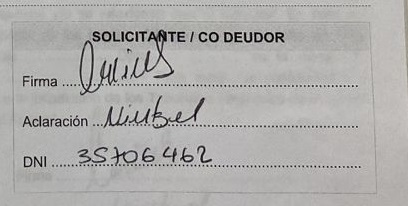 SOLICITANTE / CO DEUDOR
Firma
Aclaración
DNI 35706462